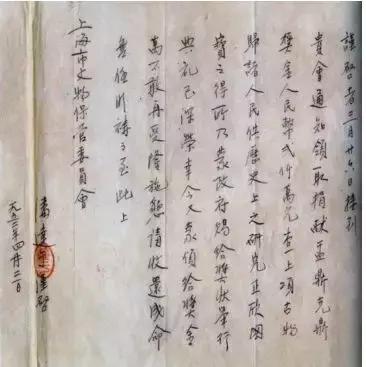 謹啓者三月廿六日接到
貴會通知領取捐献盂鼎克鼎
獎金人民幣弍仟萬元查上項古物
歸諸人民供歷史上之研究正欣國
寶之得所乃蒙政府賜給獎狀舉行
典礼已深榮幸今又蒙頒給獎金
萬不敢再受隆施懇請收還成命
無任盼禱之至此上
上海市文物保管委員會
潘達于謹啓
一九五二年四月二日